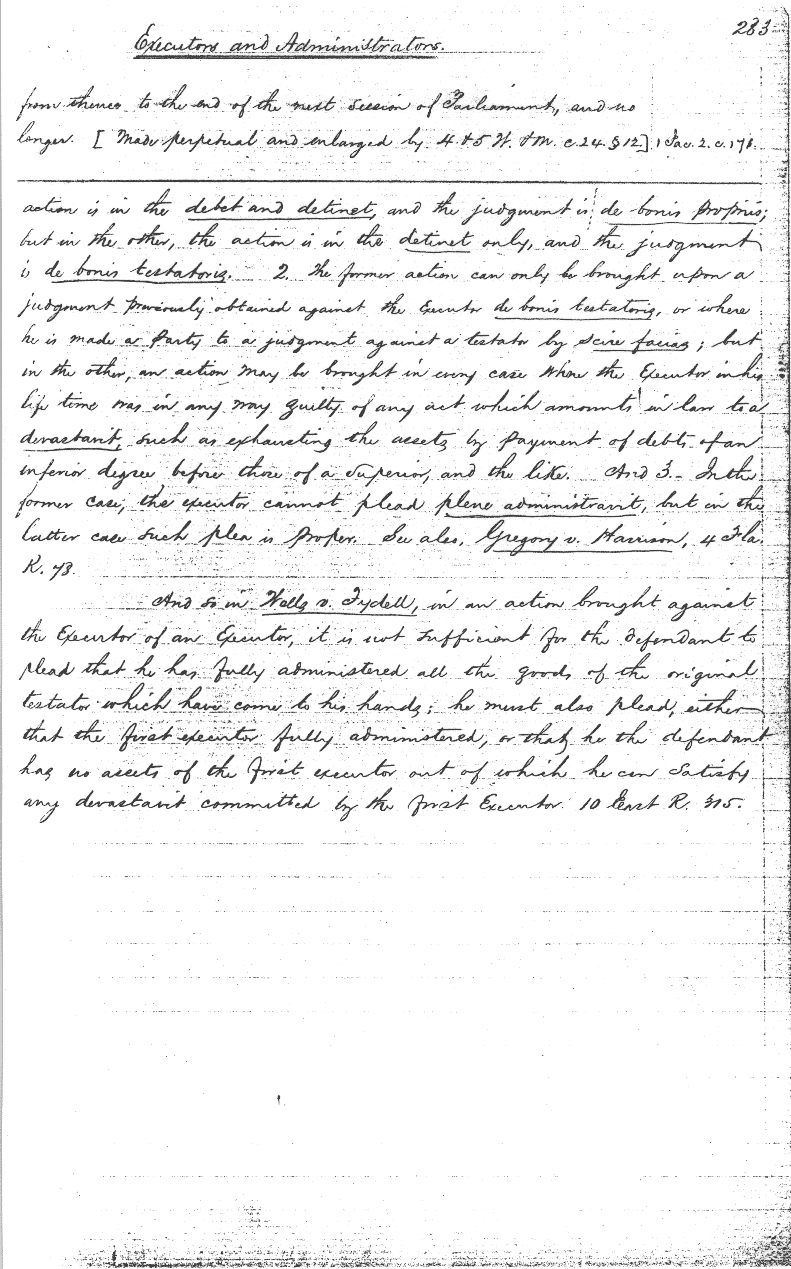 283
Executors and Administrators.
from thence to the end of the next session of Parliament, and no
longer. [Made perpetual and enlarged by 4 & 5 W. & M. c. 24. § 12.] 1 Jac. 2. c. 17 §.
action is in the debet and detinet, and the judgment is de bonis propriis;
but in the other, the action is in the detinet only, and the judgment
is de bonis testatoris. 2. The former action can only be brought upon a
judgment previously obtained against the Executor de bonis testatoris, or where
he is made a Party to a judgment against a testator by scire facias; but
in the other, an action may be brought in every case where the Executor in his
life time was in any way guilty of any act which amounts in law to a
devastavit, such as exhausting the assets by payment of debts of an
inferior degree before those of a superior, and the like. And 3. In the
former case, the executor cannot plead plene administravit, but in the
latter case such plea is proper. See also, Gregory v. Harrison, 4 Fla.
R. 73.
And so in Wells v. Fydell, in an action brought against
the Executor of an Executor, it is not sufficient for the defendant to
plead that he has fully administered all the goods of the original
testator which have come to his hands; he must also plead, either
that the first executor fully administered, or that he the defendant
has no assets of the first executor out of which he can satisfy
any devastavit committed by the first Executor. 10 East R. 315.